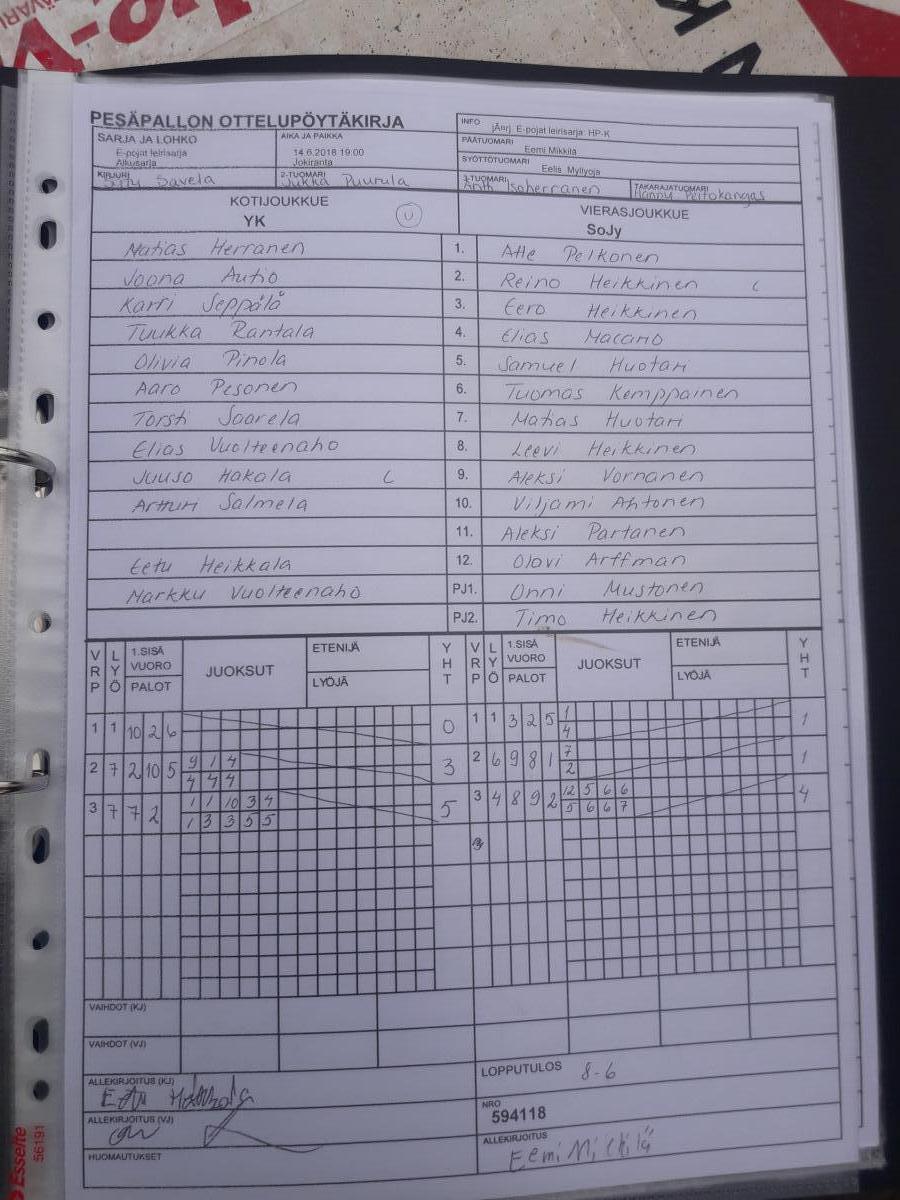 PESÄPALLON OTTELUPÖYTÄKIRJA
INFO jÄnrj E-pojat leirisarja: HP-K
SARJA JA LOHKO
E-pojat leirisarja
Alkusarja
AIKA JA PAIKKA
14.6.2018 19:00
Jokiranta
PÄÄTUOMARI
Eemi Mikkilä
SYÖTTÖTUOMARI
Eelis Myllyoja
KIRJURI Savela
2-TUOMARI Jukka Puurula
3-TUOMARI Antti Isoherranen
TAKARAJATUOMARI Hannu Peltokangas
KOTIJOUKKUE
YK U
VIERASJOUKKUE
SoJy
Matias Herranen 1. Atte Pelkonen
Joona Autio 2. Reino Heikkinen C
Karri Seppälä 3. Eero Heikkinen
Tuukka Rantala 4. Elias Macano
Olivia Pinola 5. Samuel Huotari
Aaro Pesonen 6. Tuomas Kemppainen
Torsti Saarela 7. Matias Huotari
Elias Vuolteenaho 8. Leevi Heikkinen
Juuso Hakala C 9. Aleksi Vornanen
Artturi Salmela 10. Viljami Ahtonen
11. Aleksi Partanen
Eetu Heikkala 12. Olavi Arffman
Markku Vuolteenaho PJ1. Onni Mustonen
PJ2. Timo Heikkinen
VRP LYÖ 1.SISÄ VUORO PALOT JUOKSUT ETENIJÄ LYÖJÄ YHT VRP LYÖ 1.SISÄ VUORO PALOT JUOKSUT ETENIJÄ LYÖJÄ YHT
1 1 10 2 6 0 1 1 3 2 5 1 1
4
2 7 2 10 5 9 1 4 3 2 6 9 8 1 7 1
4 4 4 2
3 7 7 2 1 1 10 3 4 5 3 4 8 9 2 12 5 6 6 4
1 3 3 5 5 5 6 6 7
VAIHDOT (KJ)
VAIHDOT (VJ)
ALLEKIRJOITUS (KJ)
LOPPUTULOS 8-6
ALLEKIRJOITUS (VJ)
NRO
594118
HUOMAUTUKSET
ALLEKIRJOITUS Eemi Mikkilä
Esselte
56191